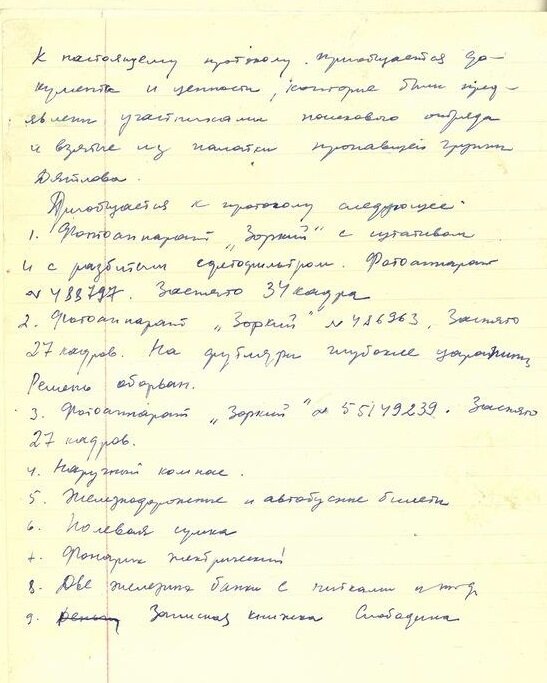 К настоящему протоколу приобщается до-
кументы и ценности, которые были пред-
явлены участниками поискового отряда
и взятые из палатки пропавшей группы
Дятлова.
Приобщается к протоколу следующее:
1. Фотоаппарат „Зоркий" с штативом
и с разбитым светофильтром. Фотоаппарат
№ 488797. Заснято 34 кадра
2. Фотоаппарат „Зоркий" № 486963. Заснято
27 кадров. На футляре глубокие царапины
Ремень оборван.
3. Фотоаппарат „Зоркий" № 55149239. Заснято
27 кадров.
4. Наручный компас.
5. Железнодорожные и автобусные билеты
6. Полевая сумка
7. Фонарик электрический
8. Две железных банки с нитками и т.д.
9. Записная книжка Слободина